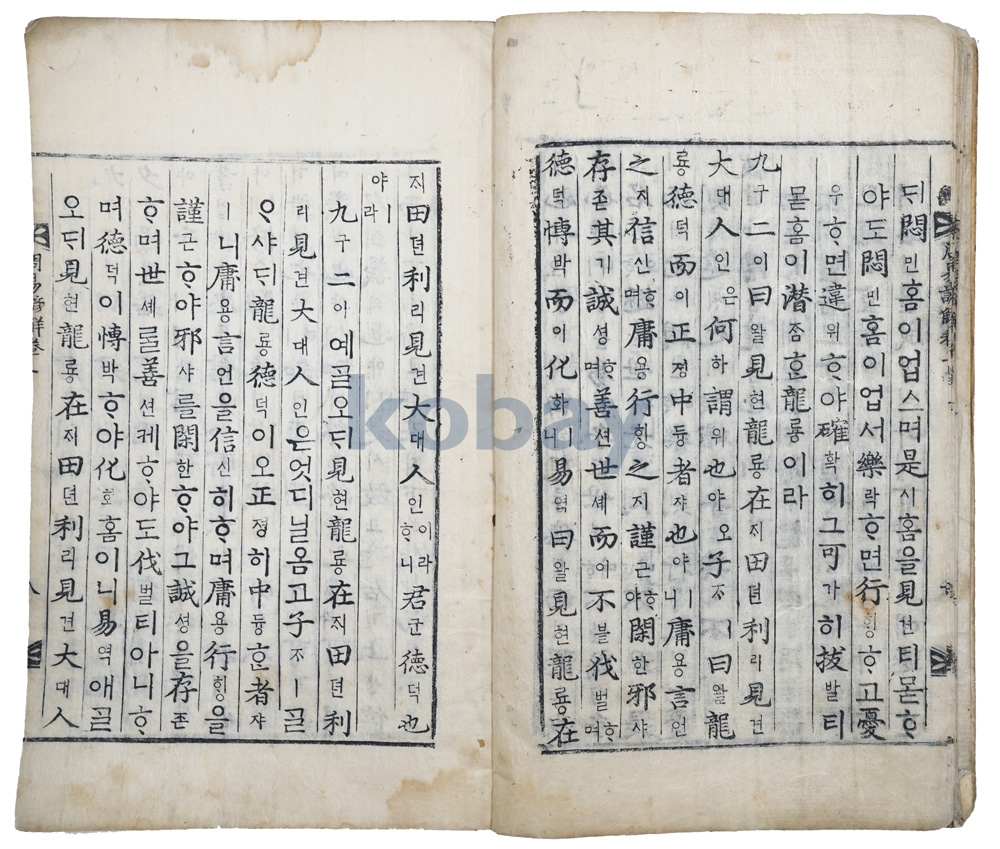 ᄃᆡ悶민홈이업스며是시홈을見견티몯ᄒᆞ
야도悶민홈이업서樂락ᄒᆞ면行ᄒᆡᆼᄒᆞ고憂
우ᄒᆞ면違위ᄒᆞ야確확히그可가히拔발티
몯홈이潛ᄌᆞᆷᄒᆞᆫ龍룡이라
九구二이曰왈見현龍룡在ᄌᆡ田뎐利리見견
大대人인은何하謂위也야오子ᄌᆞㅣ曰왈龍
룡德덕而이正졍中듕者쟈也야ㅣ니庸용言언
之지信신ᄒᆞ며庸용行ᄒᆡᆼ之지謹근ᄒᆞ야閑한邪샤
存존其기誠셩ᄒᆞ며善션世셰而이不블伐벌ᄒᆞ며
德덕博박而이化화ㅣ니易역曰왈見현龍룡在
ᄌᆡ田뎐利리見견大대人인이라ᄒᆞ니君군德덕也
야ㅣ라
九구二이예ᄀᆞᆯ오ᄃᆡ見현龍룡在ᄌᆡ田뎐利
리見견大대人인은엇디닐옴고子ᄌᆞㅣᄀᆞᆯ
ᄋᆞ샤ᄃᆡ龍룡德덕이오正졍히中듕ᄒᆞᆫ者쟈
ㅣ니庸용言언을信신히ᄒᆞ며庸용行ᄒᆡᆼ을
謹근ᄒᆞ야邪샤를閑한ᄒᆞ야그誠셩을存존
ᄒᆞ며世셰ᄅᆞᆯ善션케ᄒᆞ야도伐벌티아니ᄒᆞ
며德덕이博박ᄒᆞ야化화홈이니易역애ᄀᆞᆯ
오ᄃᆡ見현龍룡在ᄌᆡ田뎐利리見견大대人
周易諺解卷一 八
kobay